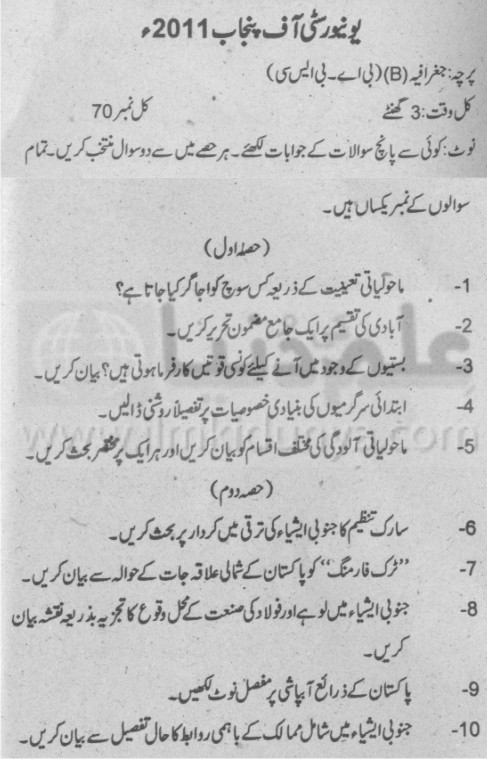 یونیورسٹی آف پنجاب 2011ء
پرچہ: جغرافیہ (B) (بی اے۔ بی ایس سی)
کل وقت: 3 گھنٹے کل نمبر 70
نوٹ: کوئی سے پانچ سوالات کے جوابات لکھئے۔ ہر حصے میں سے دو سوال منتخب کریں۔ تمام
سوالوں کے نمبر یکساں ہیں۔
(حصہ اول)
1- ماحولیاتی تعینیت کے ذریعہ کس سوچ کو اجاگر کیا جاتا ہے؟
2- آبادی کی تقسیم پر ایک جامع مضمون تحریر کریں۔
3- بستیوں کے وجود میں آنے کیلئے کونسی قوتیں کارفرما ہوتی ہیں؟ بیان کریں۔
4- ابتدائی سرگرمیوں کی بنیادی خصوصیات پر تفصیلاً روشنی ڈالیں۔
5- ماحولیاتی آلودگی کی مختلف اقسام کو بیان کریں اور ہر ایک پر مختصر بحث کریں۔
(حصہ دوم)
6- سارک تنظیم کا جنوبی ایشیاء کی ترقی میں کردار پر بحث کریں۔
7- "ٹرک فارمنگ" کو پاکستان کے شمالی علاقہ جات کے حوالہ سے بیان کریں۔
8- جنوبی ایشیاء میں لوہے اور فولاد کی صنعت کے محل وقوع کا تجزیہ بذریعہ نقشہ بیان
کریں۔
9- پاکستان کے ذرائع آبپاشی پر مفصل نوٹ لکھیں۔
10- جنوبی ایشیاء میں شامل ممالک کے باہمی روابط کا حال تفصیل سے بیان کریں۔
علم کی دنیا
www.ilmkidunya.com